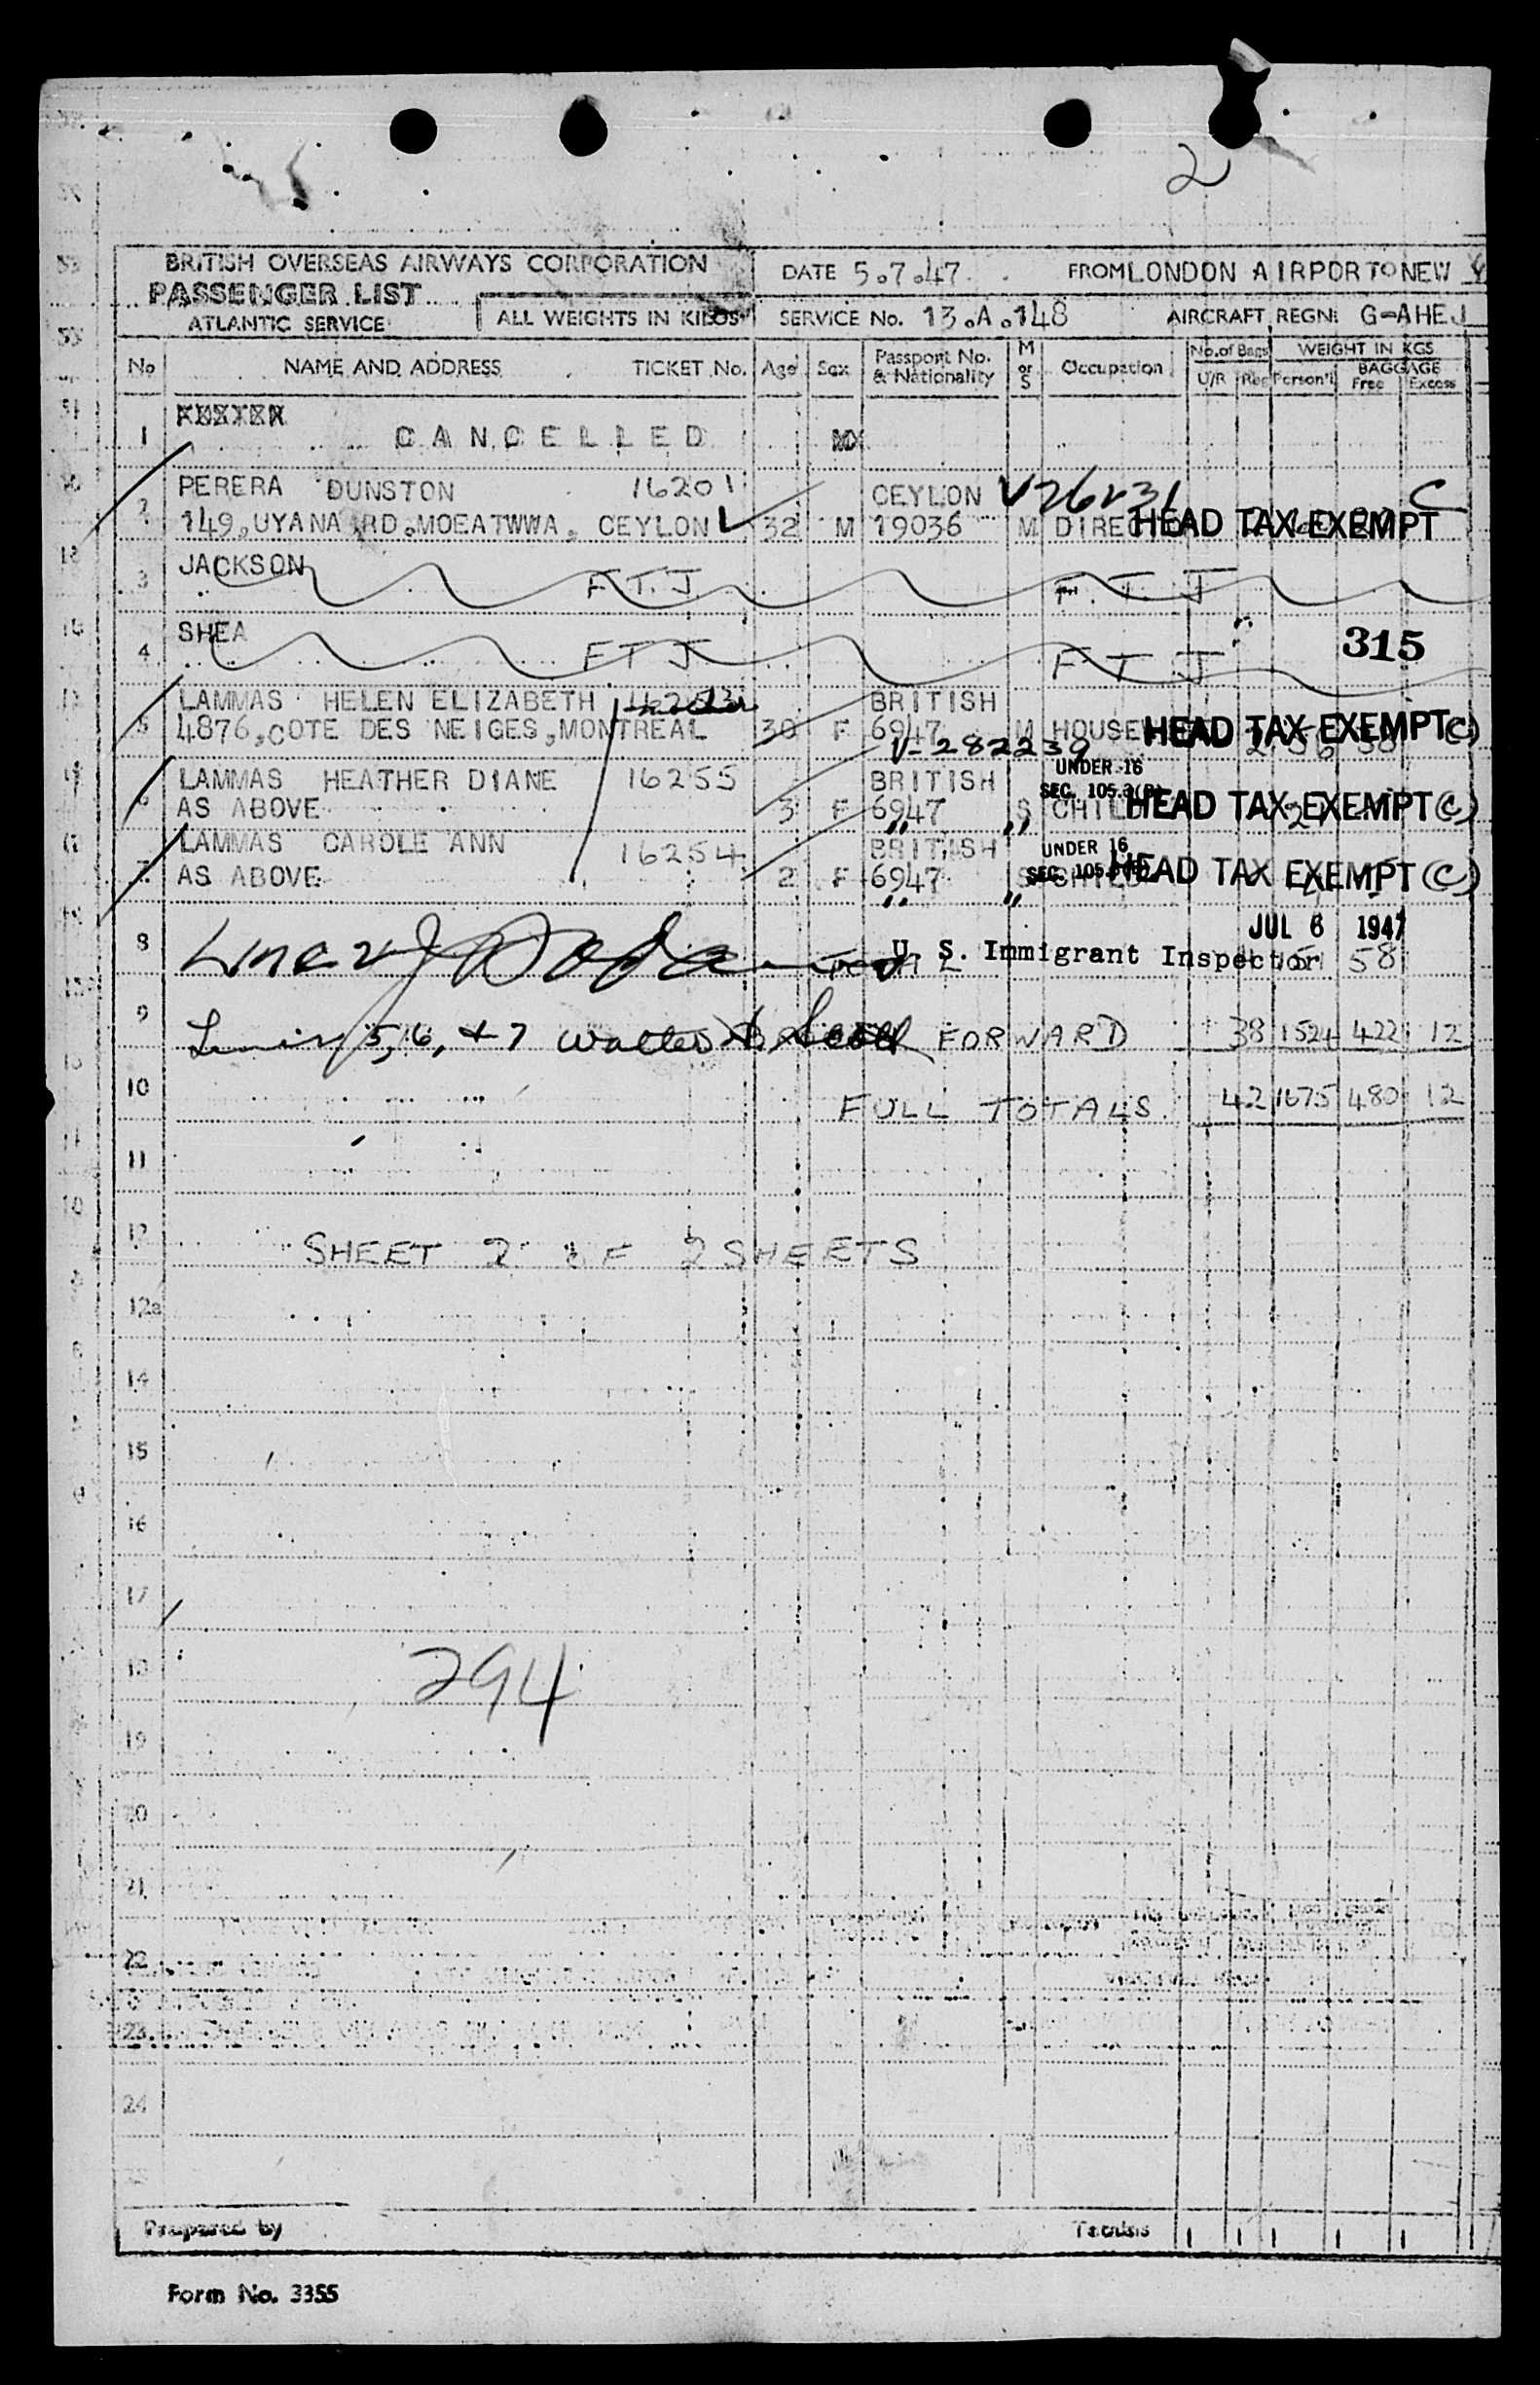 2
BRITISH OVERSEAS AIRWAYS CORPORATION
PASSENGER LIST
ATLANTIC SERVICE
ALL WEIGHTS IN KILOS
DATE 5.7.47 FROM LONDON AIRPORT TO NEW Y
SERVICE No. 13.A.148 AIRCRAFT REGN: G-AHEJ
No NAME AND ADDRESS TICKET No. Age Sex Passport No. & Nationality M or S Occupation No. of Bags U/R Reg WEIGHT IN KGS Person'l BAGGAGE Free Excess
1 CANCELLED
2 PERERA DUNSTON 16201 CEYLON V26231 C
149, UYANA RD. MOEATWWA. CEYLON 32 M 19036 M DIREC HEAD TAX EXEMPT
3 JACKSON F.T.J F.T.J
4 SHEA F T J F T J
315
5 LAMMAS HELEN ELIZABETH BRITISH
4876, COTE DES NEIGES, MONTREAL 30 F 6947 M HOUSE HEAD TAX EXEMPT (C)
V-282239
6 LAMMAS HEATHER DIANE 16255 BRITISH UNDER 16
AS ABOVE 3 F 6947 S CHILD SEC. 105.3(B) HEAD TAX EXEMPT (C)
7 LAMMAS CAROLE ANN 16254 BRITISH UNDER 16
AS ABOVE 2 F 6947 S CHILD SEC. 105. HEAD TAX EXEMPT (C)
JUL 6 1947
8 U. S. Immigrant Inspector 58
9 5, 6, + 7 Walter FORWARD 38 1524 422 12
10 FULL TOTALS. 42 1675 480 12
11
12 SHEET 2 OF 2 SHEETS
12a
14
15
16
17
18 294
19
20
21
22
23
24
Prepared by Totals
Form No. 3355